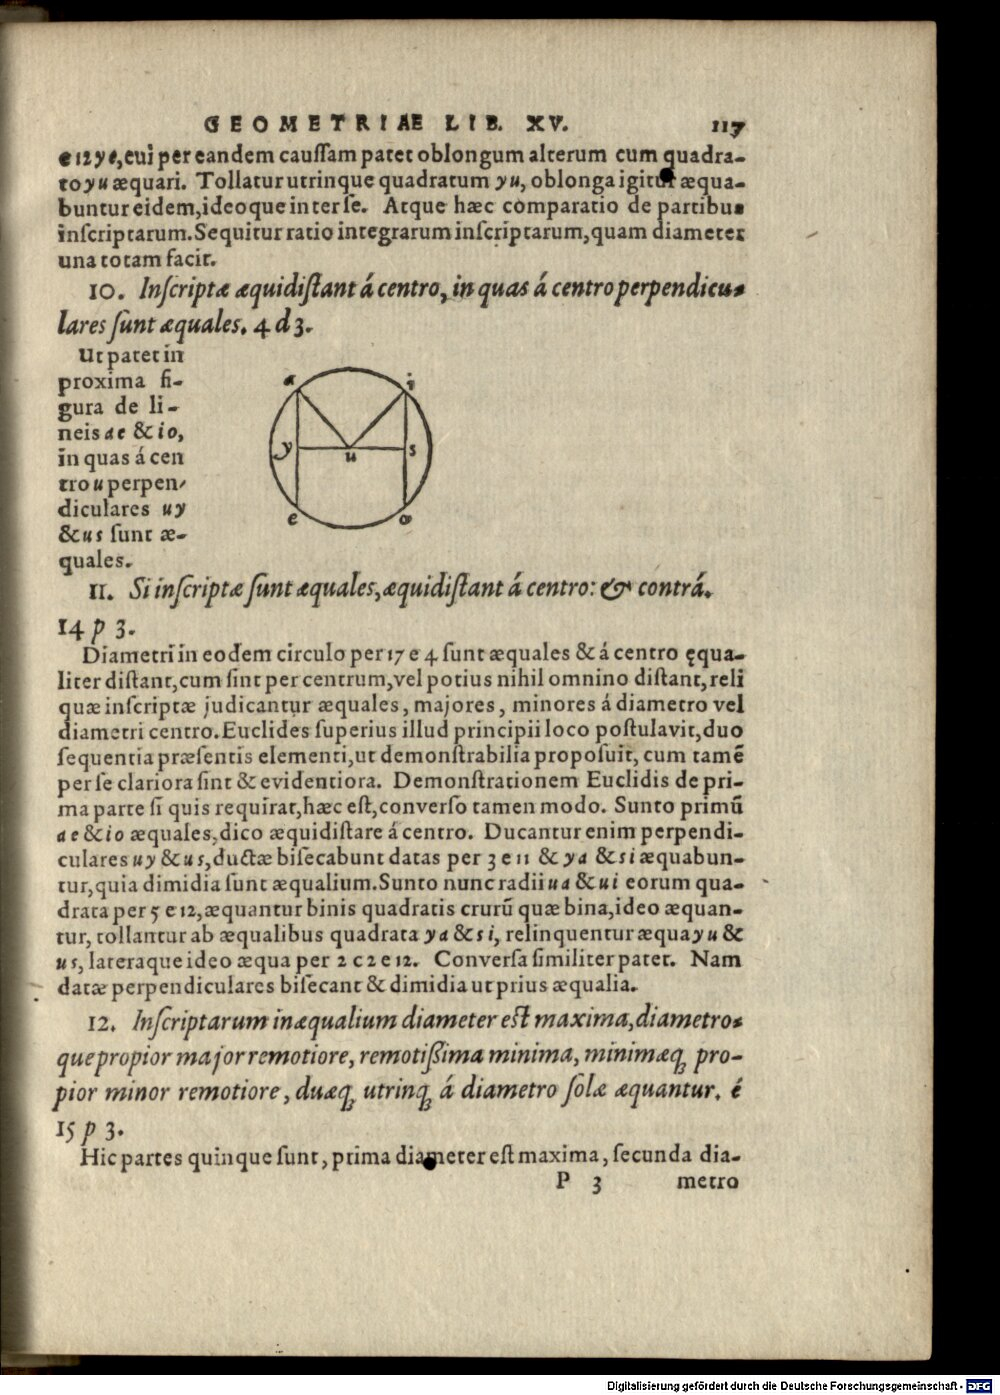 GEOMETRIÆ LIB. XV. 117
e 12 ye, cui per eandem caussam patet oblongum alterum cum quadra-
to yu æquari. Tollatur utrinque quadratum yu, oblonga igitur æqua-
buntur eidem, ideoque inter se. Atque hæc comparatio de partibus
inscriptarum. Sequitur ratio integrarum inscriptarum, quam diameter
una totam facit.
10. Inſcriptæ æquidiſtant á centro, in quas á centro perpendicu-
lares ſunt æquales. 4 d 3.
Ut patet in
proxima fi-
gura de li-
neis ae & io,
in quas á cen
tro u perpen-
diculares uy
& us ſunt æ-
quales.
a
i
y
u
s
e
o
11. Si inſcriptæ ſunt æquales, æquidiſtant á centro: & contrá.
14 p 3.
Diametri in eodem circulo per 17 e 4 ſunt æquales & á centro ęqua-
liter diſtant, cum ſint per centrum, vel potius nihil omnino diſtant, reli
quæ inſcriptæ judicantur æquales, majores, minores á diametro vel
diametri centro. Euclides ſuperius illud principii loco poſtulavit, duo
ſequentia præſentis elementi, ut demonſtrabilia propoſuit, cum tamē
per ſe clariora ſint & evidentiora. Demonſtrationem Euclidis de pri-
ma parte ſi quis requirat, hæc eſt, converſo tamen modo. Sunto primū
ae & io æquales, dico æquidiſtare á centro. Ducantur enim perpendi-
culares uy & us, ductæ biſecabunt datas per 3 e 11 & ya & si æquabun-
tur, quia dimidia ſunt æqualium. Sunto nunc radii ua & ui eorum qua-
drata per 5 e 12, æquantur binis quadratis crurū quæ bina, ideo æquan-
tur, tollantur ab æqualibus quadrata ya & si, relinquentur æqua yu &
us, lateraque ideo æqua per 2 c 2 e 12. Converſa ſimiliter patet. Nam
datæ perpendiculares biſecant & dimidia ut prius æqualia.
12. Inſcriptarum inæqualium diameter eſt maxima, diametro-
que propior major remotiore, remotißima minima, minimæq; pro-
pior minor remotiore, duæq; utrinq; á diametro ſolæ æquantur. é
15 p 3.
Hic partes quinque ſunt, prima diameter eſt maxima, ſecunda dia-
P 3 metro
Digitalisierung gefördert durch die Deutsche Forschungsgemeinschaft - DFG